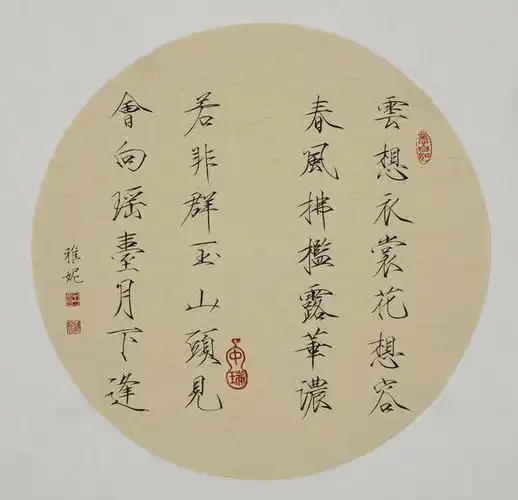 雲想衣裳花想容
春風拂檻露華濃
若非群玉山頭見
會向瑶臺月下逢
雅妮